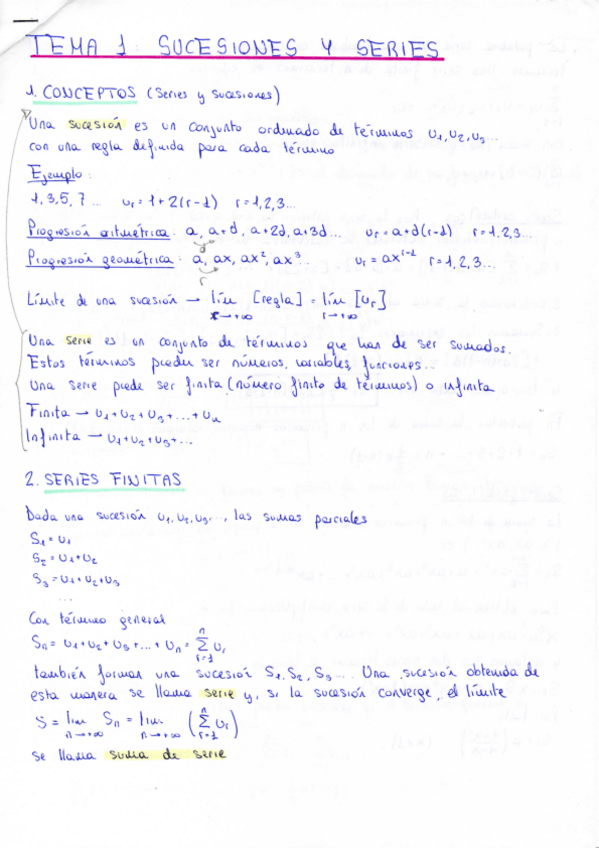 TEMA 1: SUCESIONES Y SERIES
1. CONCEPTOS (Series y sucesiones)
Una sucesión es un conjunto ordenado de términos u₁, u₂, u₃...
con una regla definida para cada término
Ejemplo:
1, 3, 5, 7... uᵣ = 1 + 2(r-1) r = 1, 2, 3...
Progresión aritmética: a, a+d, a+2d, a+3d... uᵣ = a+d(r-1) r = 1, 2, 3...
d
Progresión geométrica: a, ax, ax², ax³ uᵣ = axʳ⁻¹ r = 1, 2, 3...
r
Límite de una sucesión → lím [regla] = lím [uᵣ]
x→+∞ r→+∞
Una serie es un conjunto de términos que han de ser sumados.
Estos términos pueden ser números, variables, funciones...
Una serie puede ser finita (número finito de términos) o infinita
Finita → u₁+u₂+u₃+...+uₙ
Infinita → u₁+u₂+u₃+...
2. SERIES FINITAS
Dada una sucesión u₁, u₂, u₃..., las sumas parciales
S₁ = u₁
S₂ = u₁+u₂
S₃ = u₁+u₂+u₃
...
Con término general
Sₙ = u₁+u₂+u₃+...+uₙ = Σⁿᵣ₌₁ uᵣ
también forman una sucesión S₁, S₂, S₃.... Una sucesión obtenida de
esta manera se llama serie y, si la sucesión converge, el límite
S = lím Sₙ = lím (Σⁿᵣ₌₁ uᵣ)
n→+∞ n→+∞
se llama suma de serie